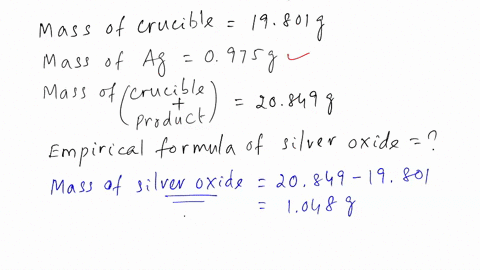 Mass of crucible = 19.801 g
Mass of Ag = 0.975 g ✓
Mass of (crucible + product) = 20.849 g
Empirical formula of silver oxide = ?
Mass of silver oxide = 20.849 - 19.801
= 1.048 g